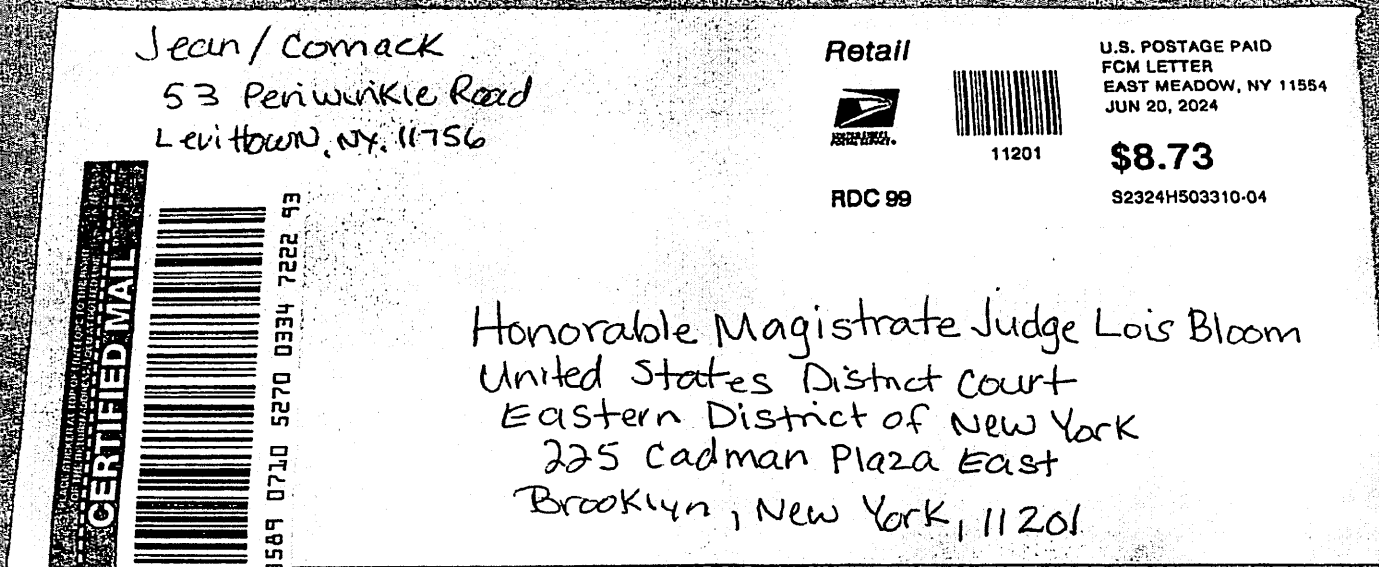 Jean / Comack
53 Periwinkle Road
Levittown, NY. 11756
Retail
UNITED STATES
POSTAL SERVICE.
11201
RDC 99
U.S. POSTAGE PAID
FCM LETTER
EAST MEADOW, NY 11554
JUN 20, 2024
$8.73
S2324H503310-04
CERTIFIED MAIL
9589 0710 5270 0334 7222 93
Honorable Magistrate Judge Lois Bloom
United States District Court
Eastern District of New York
225 Cadman Plaza East
Brooklyn, New York, 11201